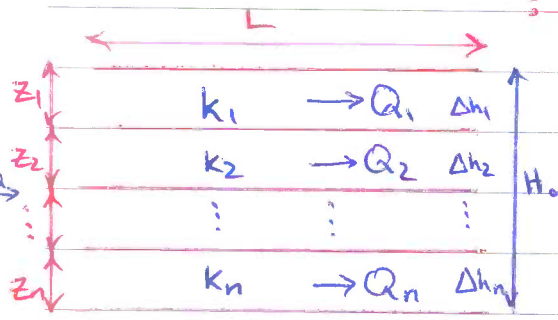 L
z₁ k₁ → Q₁ Δh₁
z₂ k₂ → Q₂ Δh₂
H₀
⋮ ⋮ ⋮ ⋮
zₙ kₙ → Qₙ Δhₙ